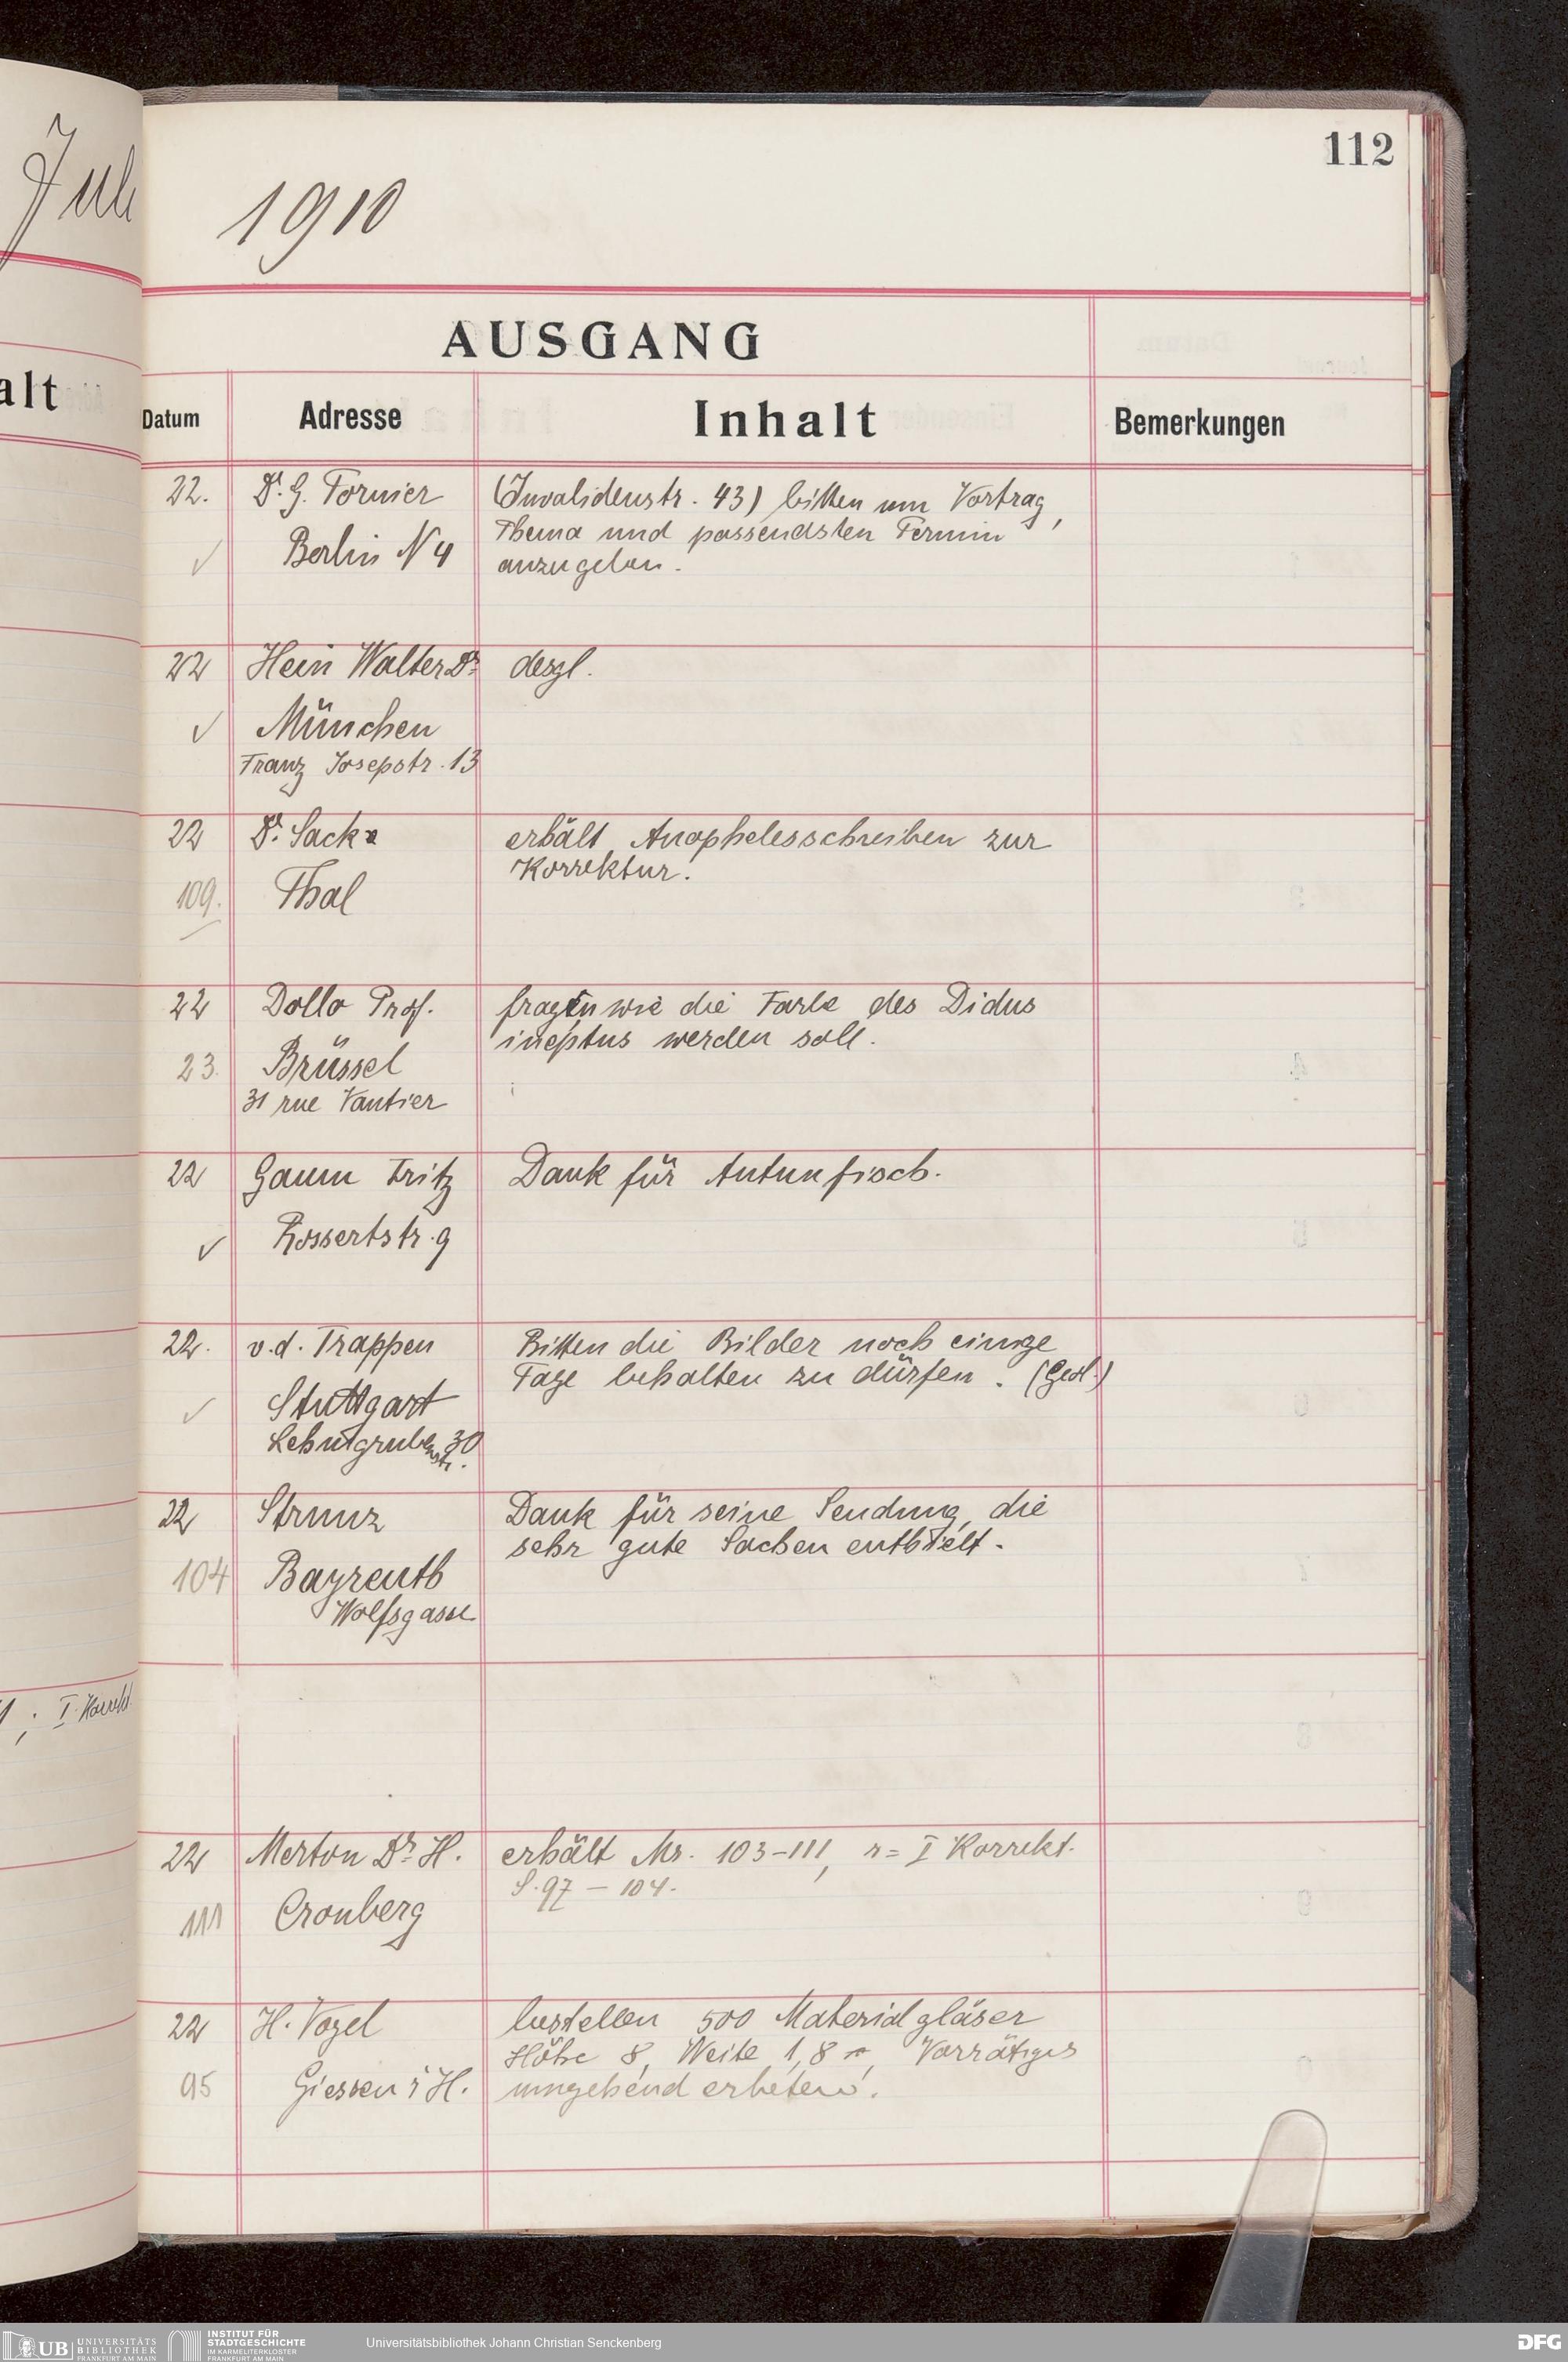 Juli
1910
112
AUSGANG
alt
Datum
Adresse
Inhalt
Bemerkungen
22.
Dr. G. Tornier
(Invalidenstr. 43) bitten um Vortrag,
Thema und passendsten Termin
Berlin N 4
anzugeben.
22
Hein Walter Dr.
desgl.
München
Franz Josepstr. 13
22
Dr. Sack
erhält Anophelesschreiben zur
Korrektur.
109.
Thal
22
Dollo Prof.
fragen wie die Farbe des Didus
ineptus werden soll.
23.
Brüssel
31 rue Vautier
22
Gaum Fritz
Dank für
Rossertstr. 9
22.
v.d. Trappen
Bitten die Bilder noch einige
Tage behalten zu dürfen.
Stuttgart
30
22
Strunz
Dank für seine Sendung, die
sehr gute Sachen enthielt.
104
Bayreuth
Wolfsgasse
I. Korrekt.
22
Merton Dr. H.
erhält Mr. 103-111, r = I Korrekt.
S. 97 – 104.
111
Cronberg
22
H. Vogel
bestellen 500 Materialgläser
Höhe 8, Weite 1,8 Vorrätiges
95
Giessen i H.
umgehend erbeten.
UB UNIVERSITÄTS
BIBLIOTHEK
FRANKFURT AM MAIN
INSTITUT FÜR
STADTGESCHICHTE
IM KARMELITERKLOSTER
FRANKFURT AM MAIN
Universitätsbibliothek Johann Christian Senckenberg
DFG